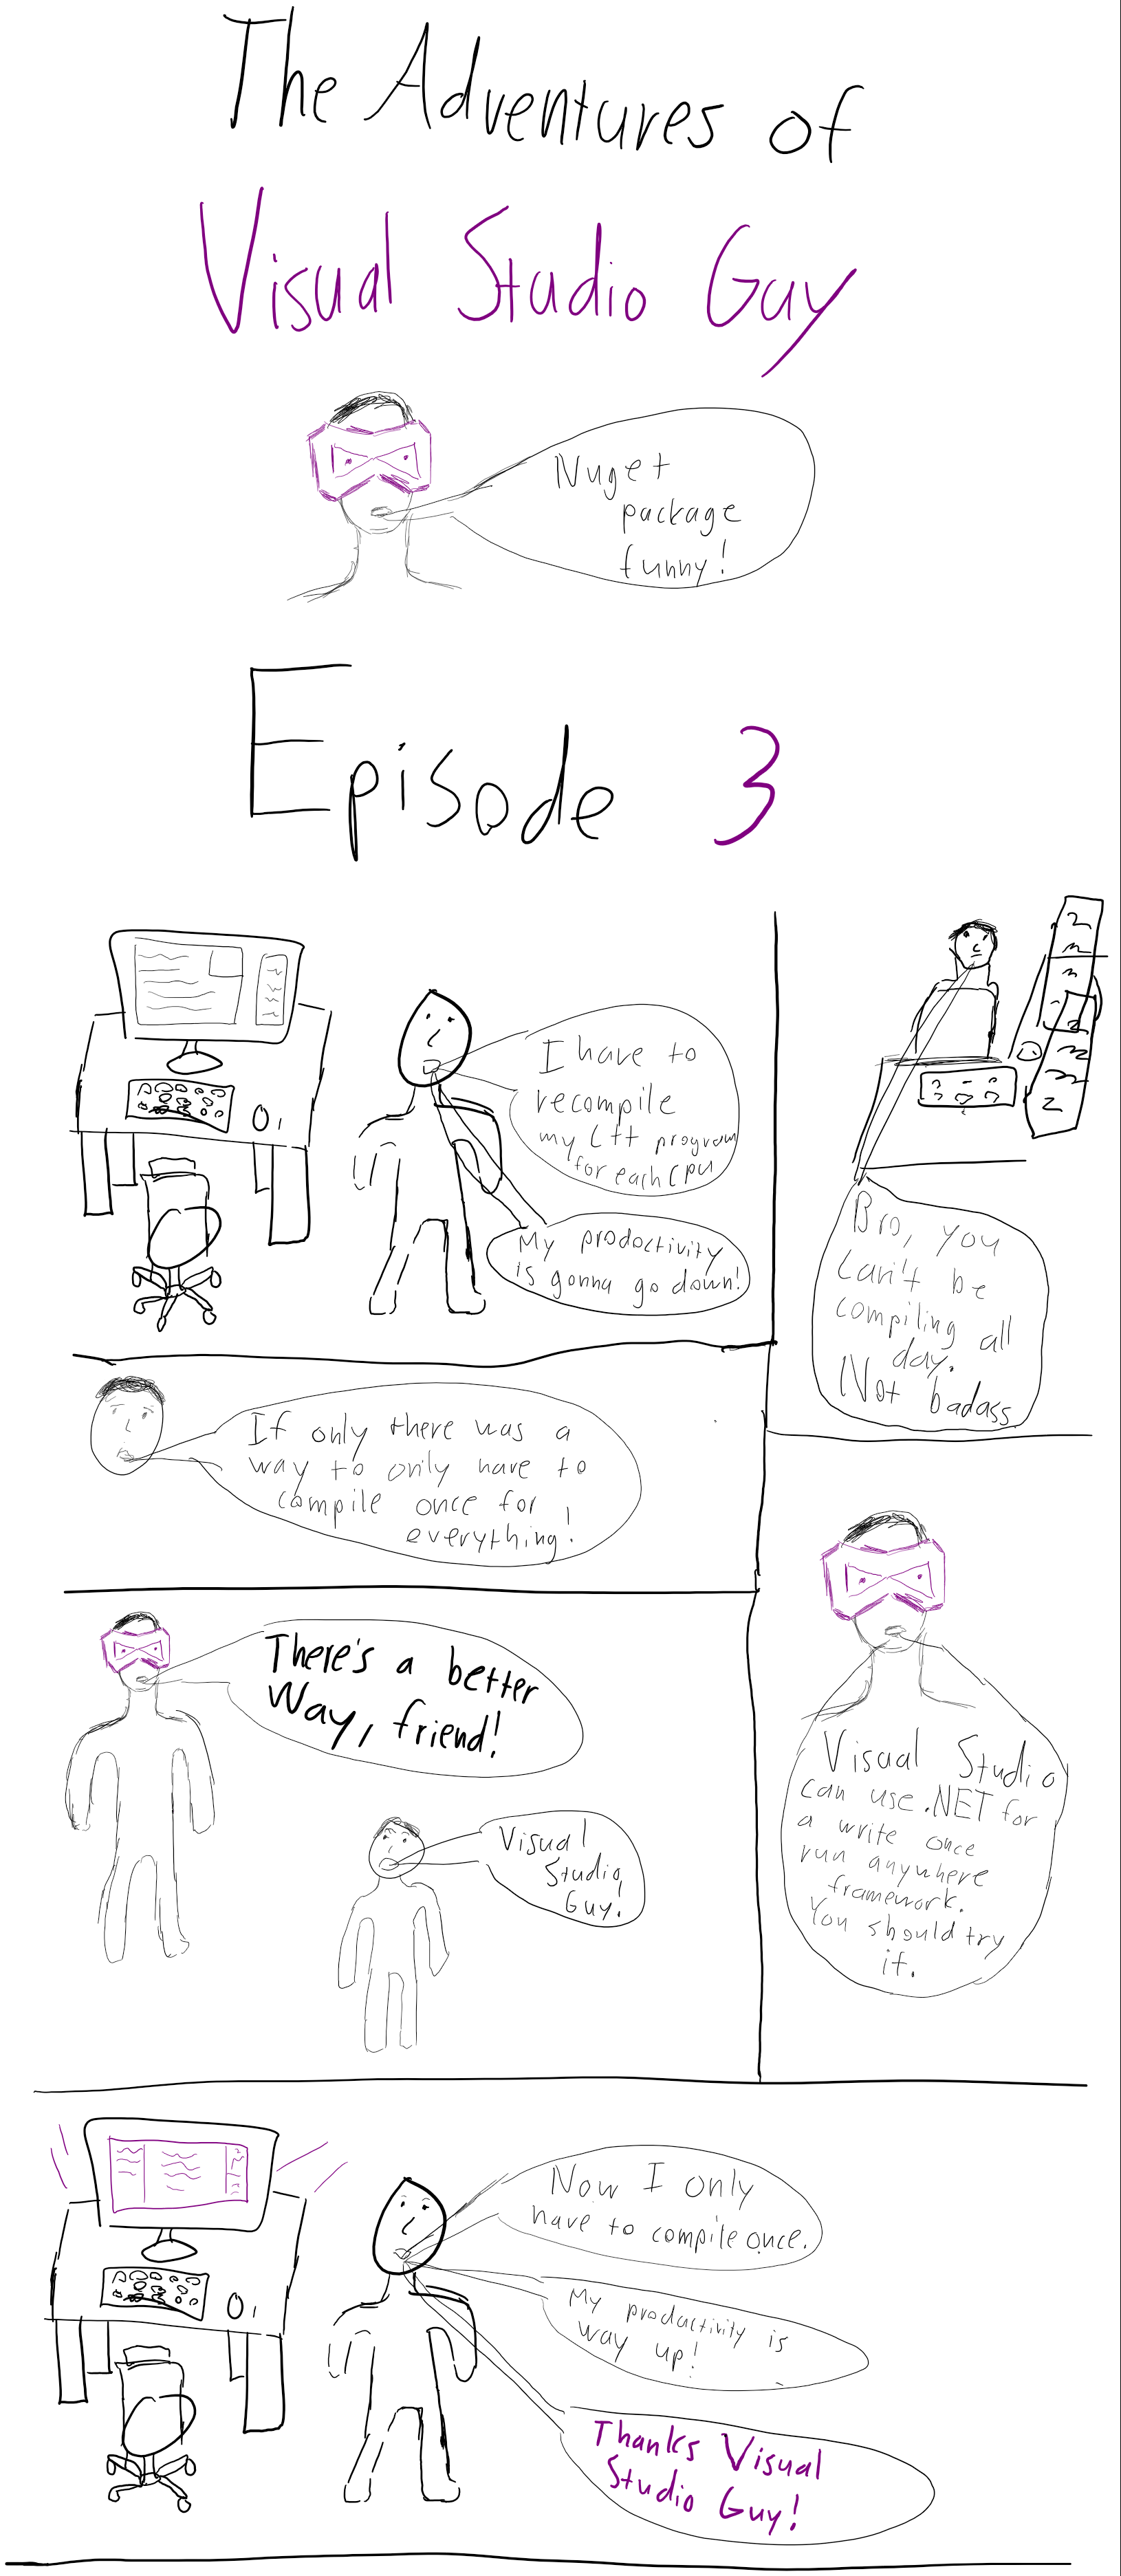 The Adventures of
Visual Studio Guy
Nuget
package
funny!
Episode 3
I have to
recompile
my C++ program
for each CPU
My prodoctivity
is gonna go down!
Bro, you
can't be
compiling all
day.
Not badass
If only there was a
way to only have to
compile once for
everything!
There's a better
way, friend!
Visual
Studio
Guy!
Visual Studio
can use .NET for
a write once
run anywhere
framework.
You should try
it.
Now I only
have to compile once.
My productivity is
way up!
Thanks Visual
Studio Guy!